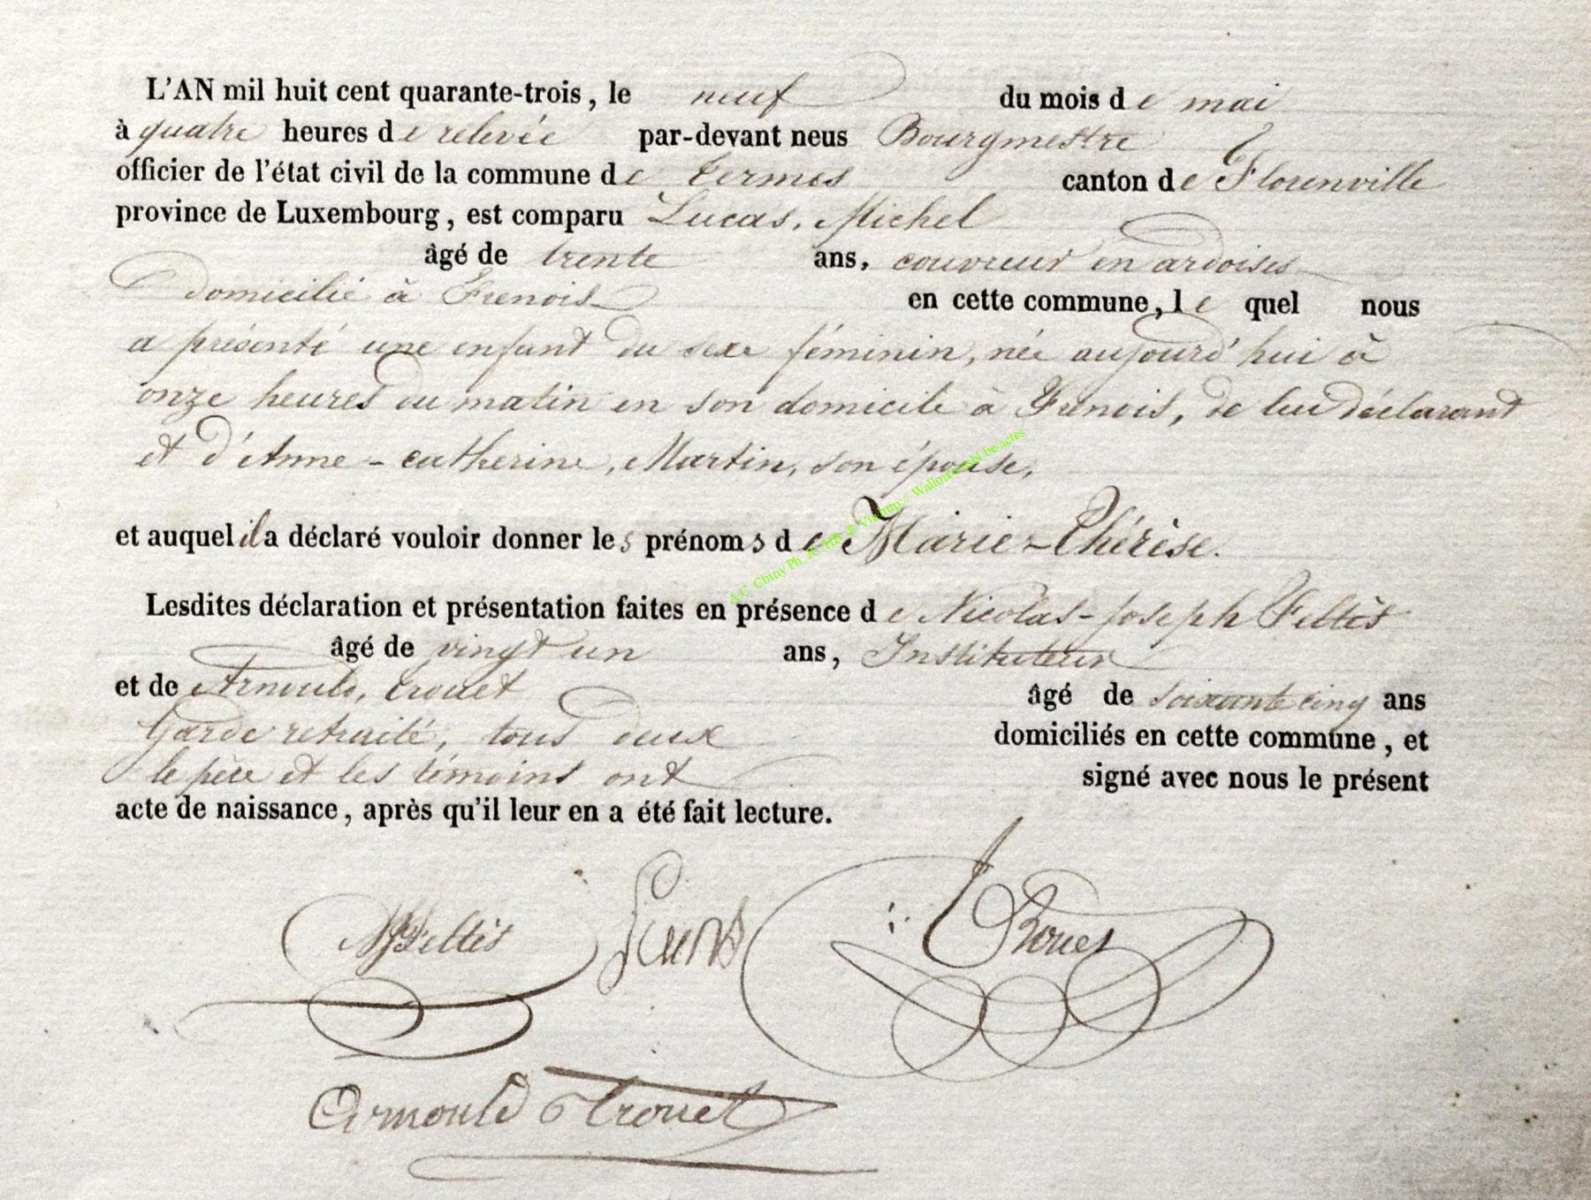 L'AN mil huit cent quarante-trois, le neuf du mois de mai
à quatre heures de relevée par-devant neus Bourgmestre
officier de l'état civil de la commune de Termes canton de Florenville
province de Luxembourg, est comparu Lucas, Michel
âgé de trente ans, couvreur en ardoises
domicilié à Frenois en cette commune, le quel nous
a présenté une enfant du sexe féminin, née aujourd'hui à
onze heures du matin en son domicile à Frenois, de lui déclarant
et d'Anne-catherine, Martin, son épouse,
et auquel il a déclaré vouloir donner les prénoms de Marie-Thérèse.
Lesdites déclaration et présentation faites en présence de Nicolas-Joseph Feltès
âgé de vingt un ans, Instituteur
et de Arnould, Trouet âgé de soixante cinq ans
Garde retraité, tous deux domiciliés en cette commune, et
le père et les témoins ont signé avec nous le présent
acte de naissance, après qu'il leur en a été fait lecture.
NJFeltès Lucas
Arnould Trouet